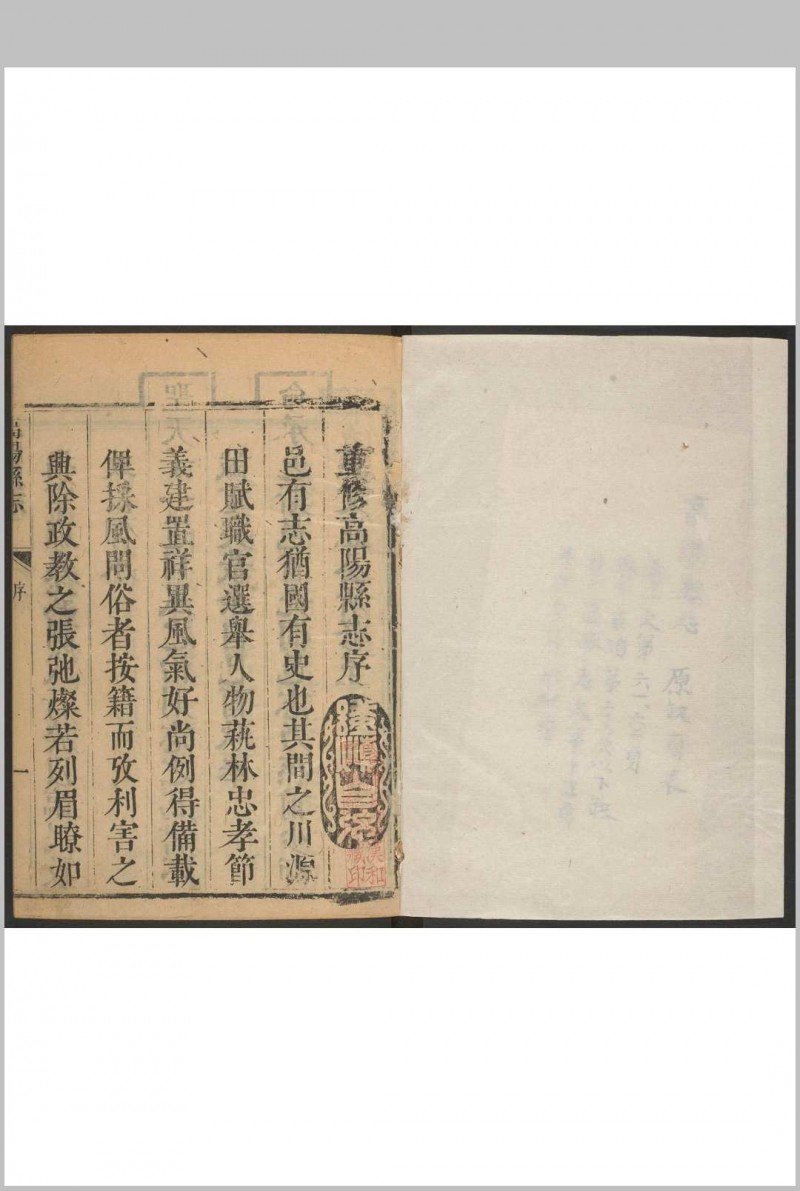 重修高陽縣志序
邑有志猶國有史也其間之川源
田賦職官選舉人物蓺林忠孝節
義建置祥異風氣好尚例得備載
俾採風問俗者按籍而攷利害之
興除政教之張弛燦若列眉瞭如
高陽縣志
序
一